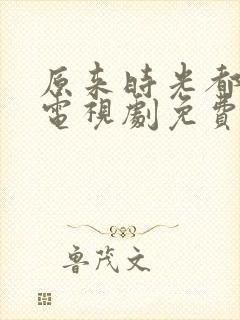 原来時光都
電視劇免費
魯茂文